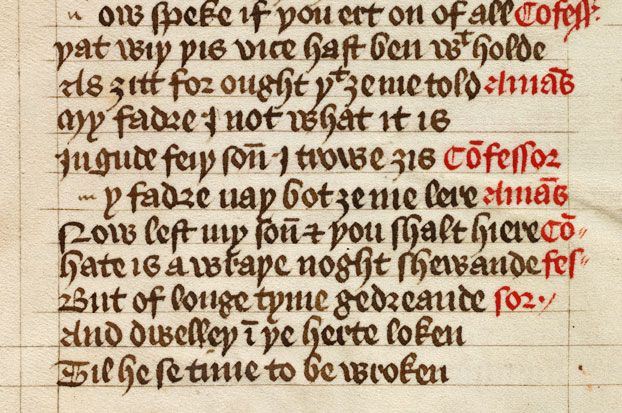 ow speke if you ert on of all Cōfess.
yat wiy yis vice hast ben wᵗholde
As ȝitt for ought yᵗ ȝe me told Amās
My fadre I not what it is
In gude feiy soñ I trowe ȝis Cōfessor
y fadre nay bot ȝe me lere Amās
Now lest my soñ & you shalt hiere Cō
hate is a wraye noght shewande fes
But of longe tyme gedreande sor·
And dwelley ī ye herte loken
Til he se time to be wroken